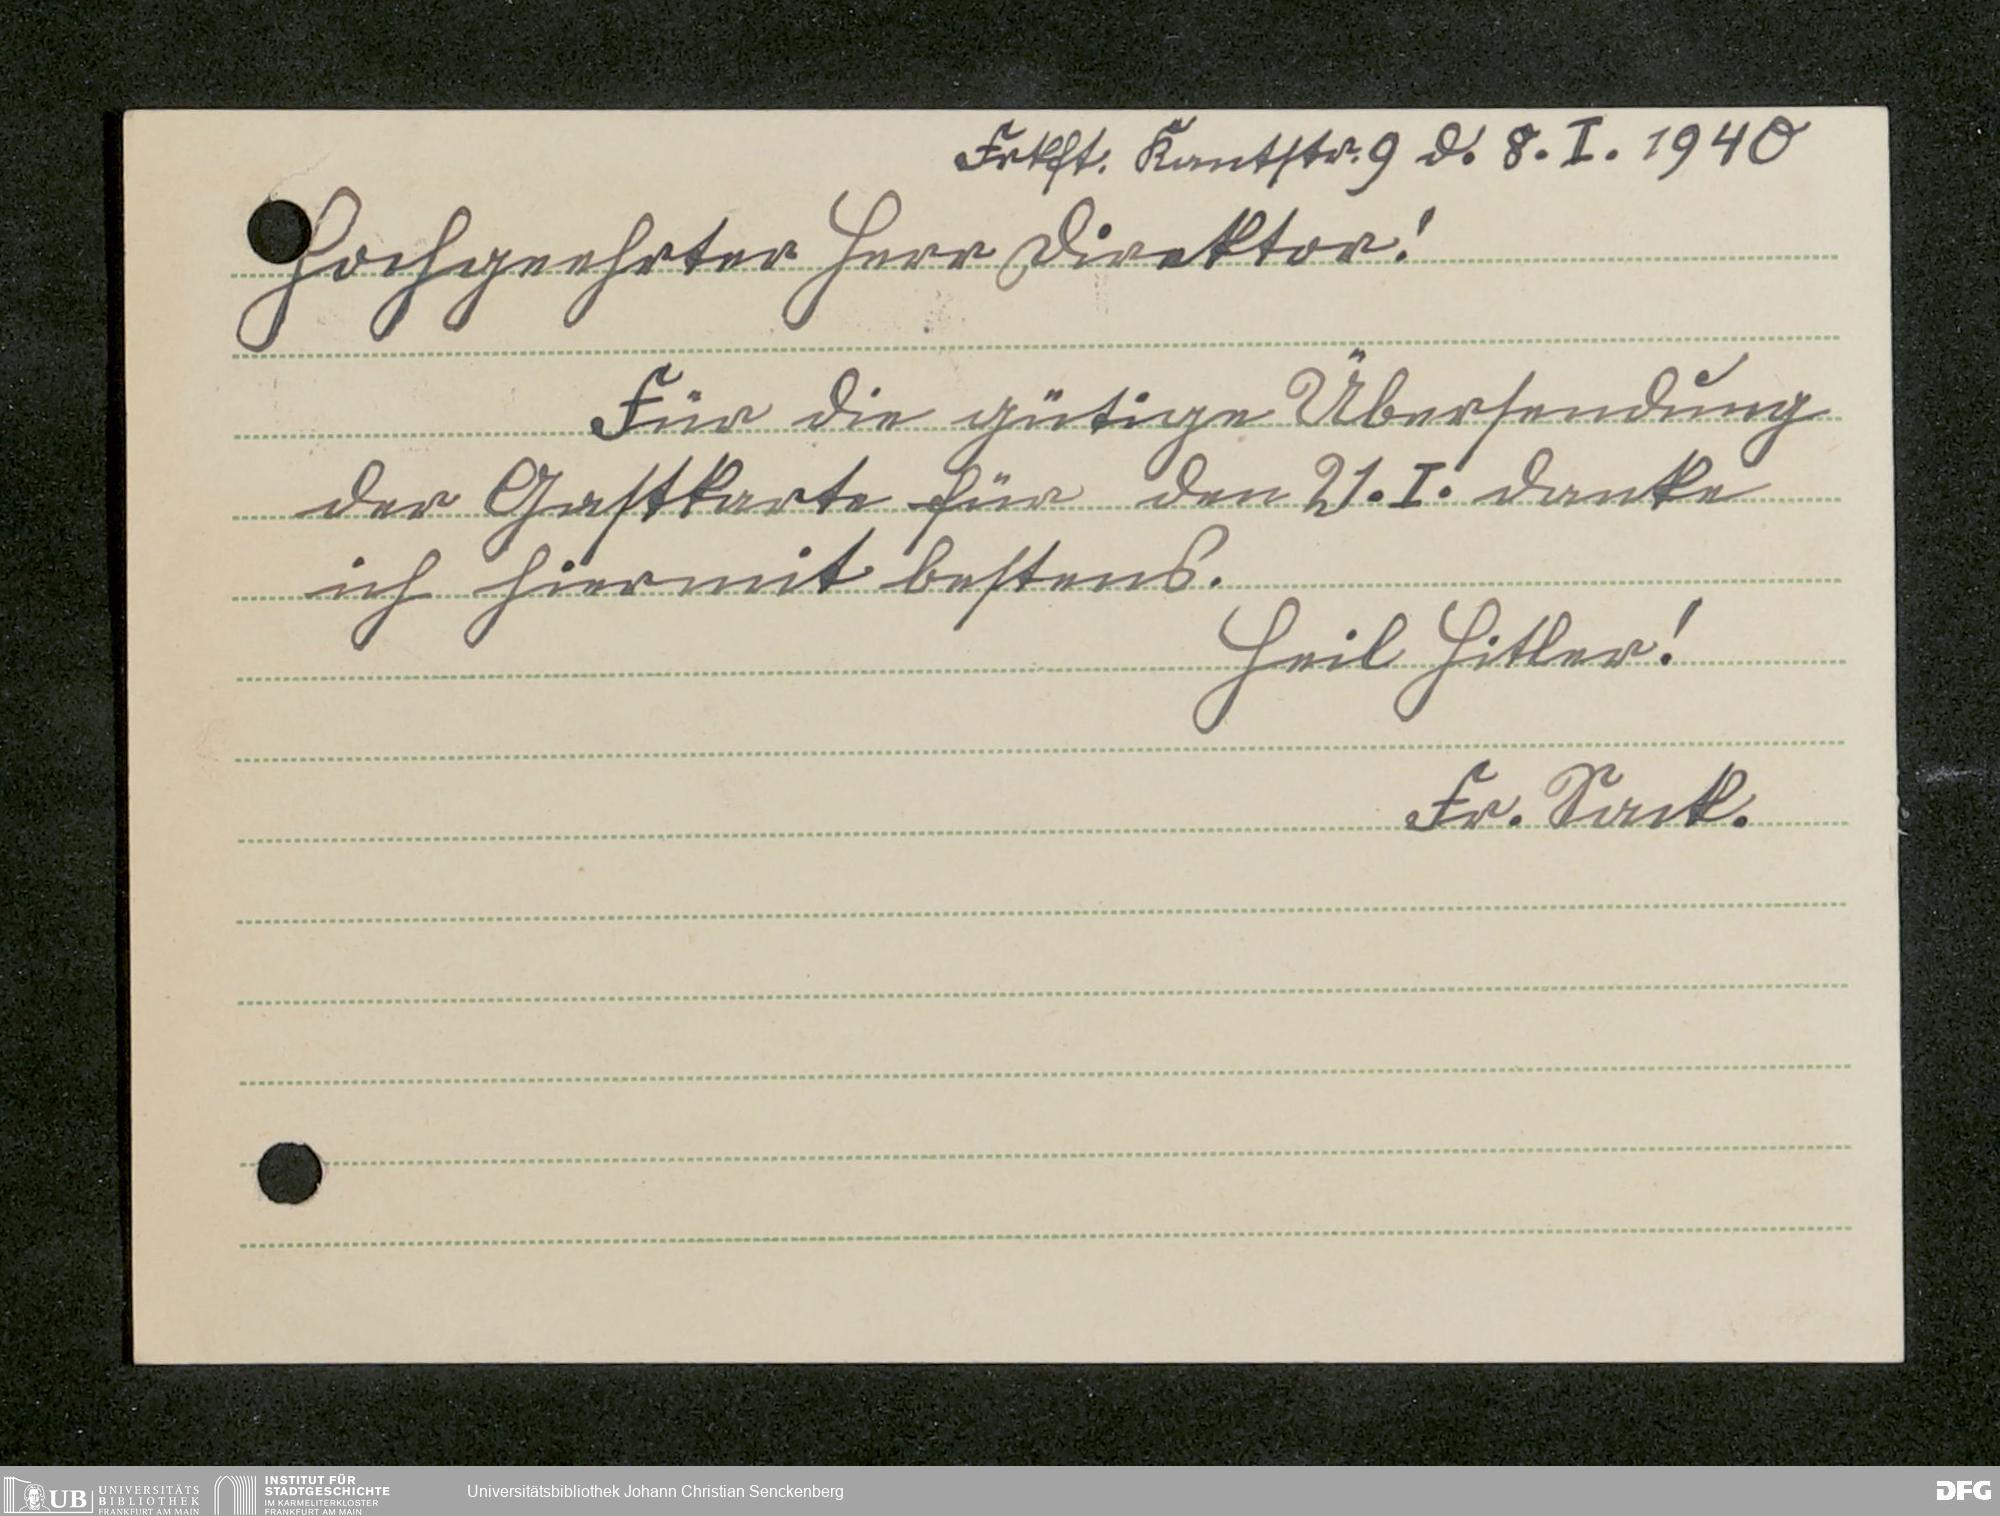 Frkft. Kantstr. 9 d. 8. I. 1940
Hochgeehrter Herr Direktor!
Für die gütige Übersendung
der Gastkarte für den 21. I. danke
ich hiermit bestens.
Heil Hitler!
Fr. Sack.
UB UNIVERSITÄTS
BIBLIOTHEK
FRANKFURT AM MAIN
INSTITUT FÜR
STADTGESCHICHTE
IM KARMELITERKLOSTER
FRANKFURT AM MAIN
Universitätsbibliothek Johann Christian Senckenberg
DFG